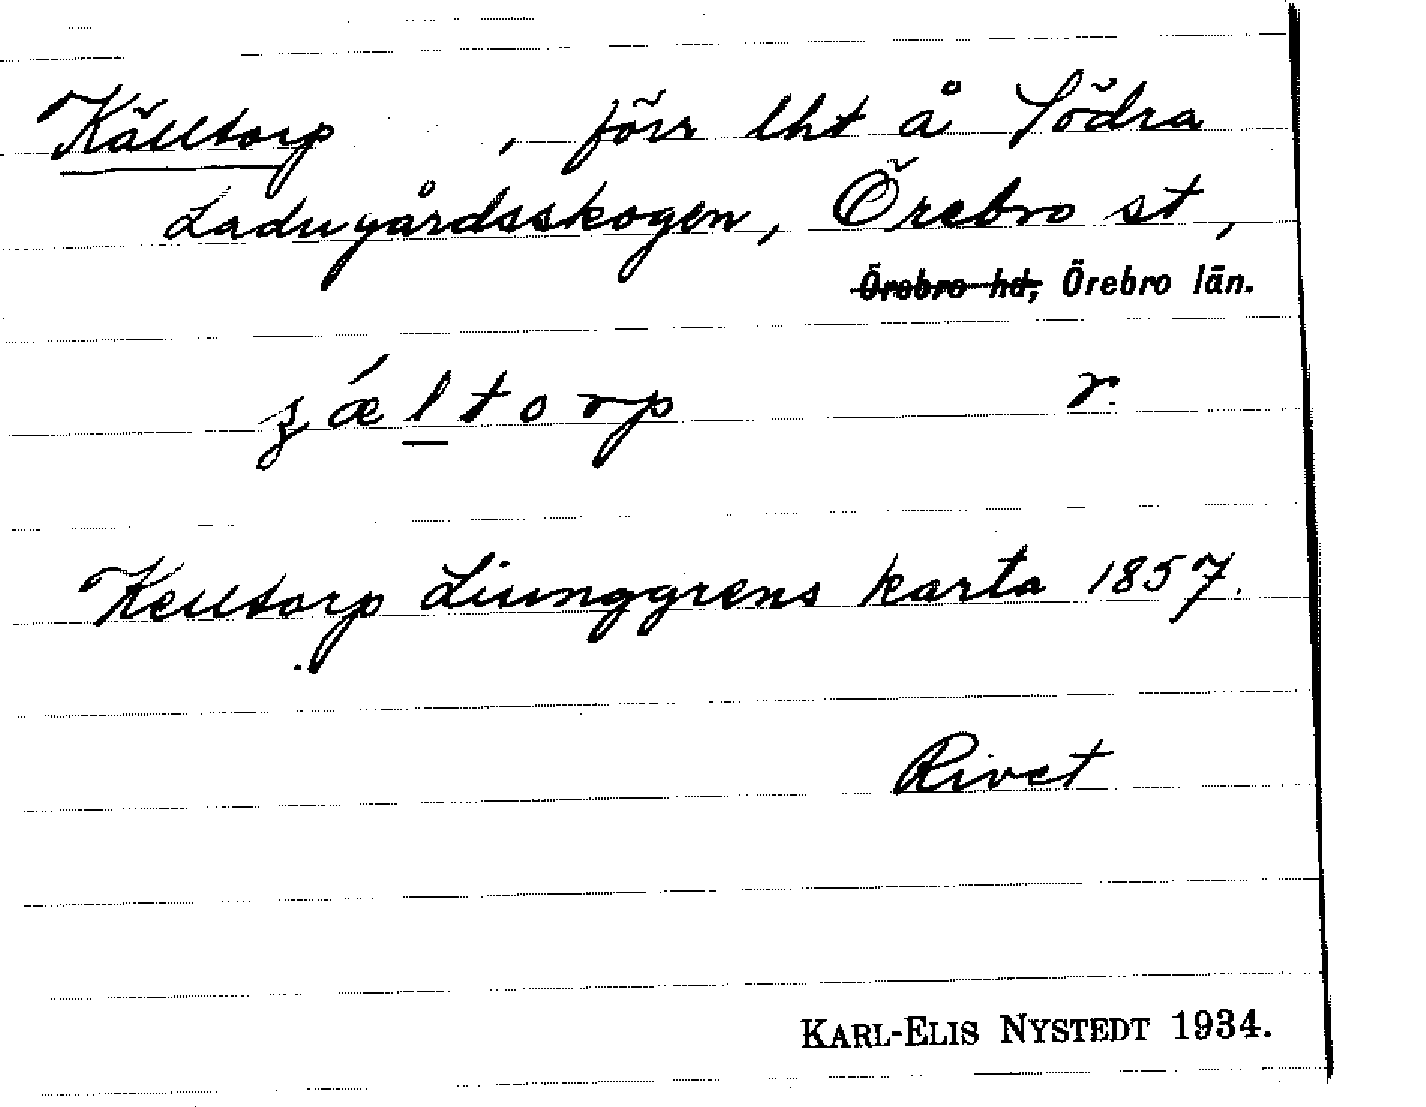 Källtorp , förr lht å Södra
Ladugårdsskogen, Örebro st,
Örebro hd, Örebro län.
ʒǽltorp r.
Kelltorp Liunggrens karta 1857.
Rivet
KARL-ELIS NYSTEDT 1934.